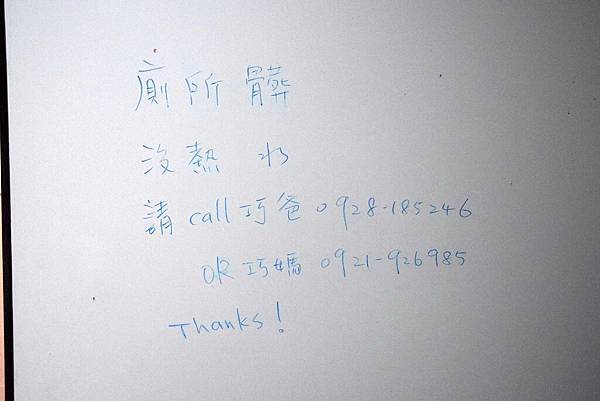 廁所髒
沒熱水
請 call 巧爸 0928-185246
OR 巧媽 0921-926985
Thanks!